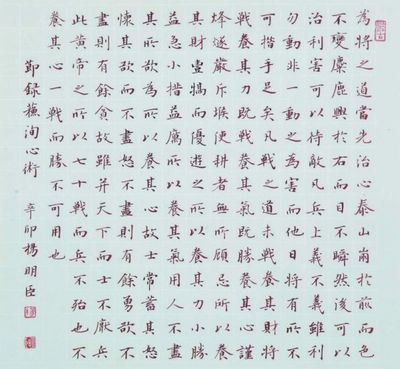 為將之道當先治心泰山崩於前而色
不變麋鹿興於左而目不瞬然後可以
治利害可以待敵凡兵上義不義雖利
勿動非一動之為害而他日將有所不
可措手足矣凡戰之道未戰養其財將
戰養其力既戰養其氣既勝養其心謹
烽燧嚴斥堠使耕者無所顧忌所以養
其財豐犒而優游之所以養其力小勝
益急小挫益厲所以養其氣用人不盡
其所欲為所以養其心故士常蓄其怒
懷其欲而不盡怒不盡則有餘勇欲不
盡則有餘貪故雖并天下而士不厭兵
此黃帝之所以七十戰而兵不殆也不
養其心一戰而勝不可用也
節錄蘇洵心術 辛卯楊明臣